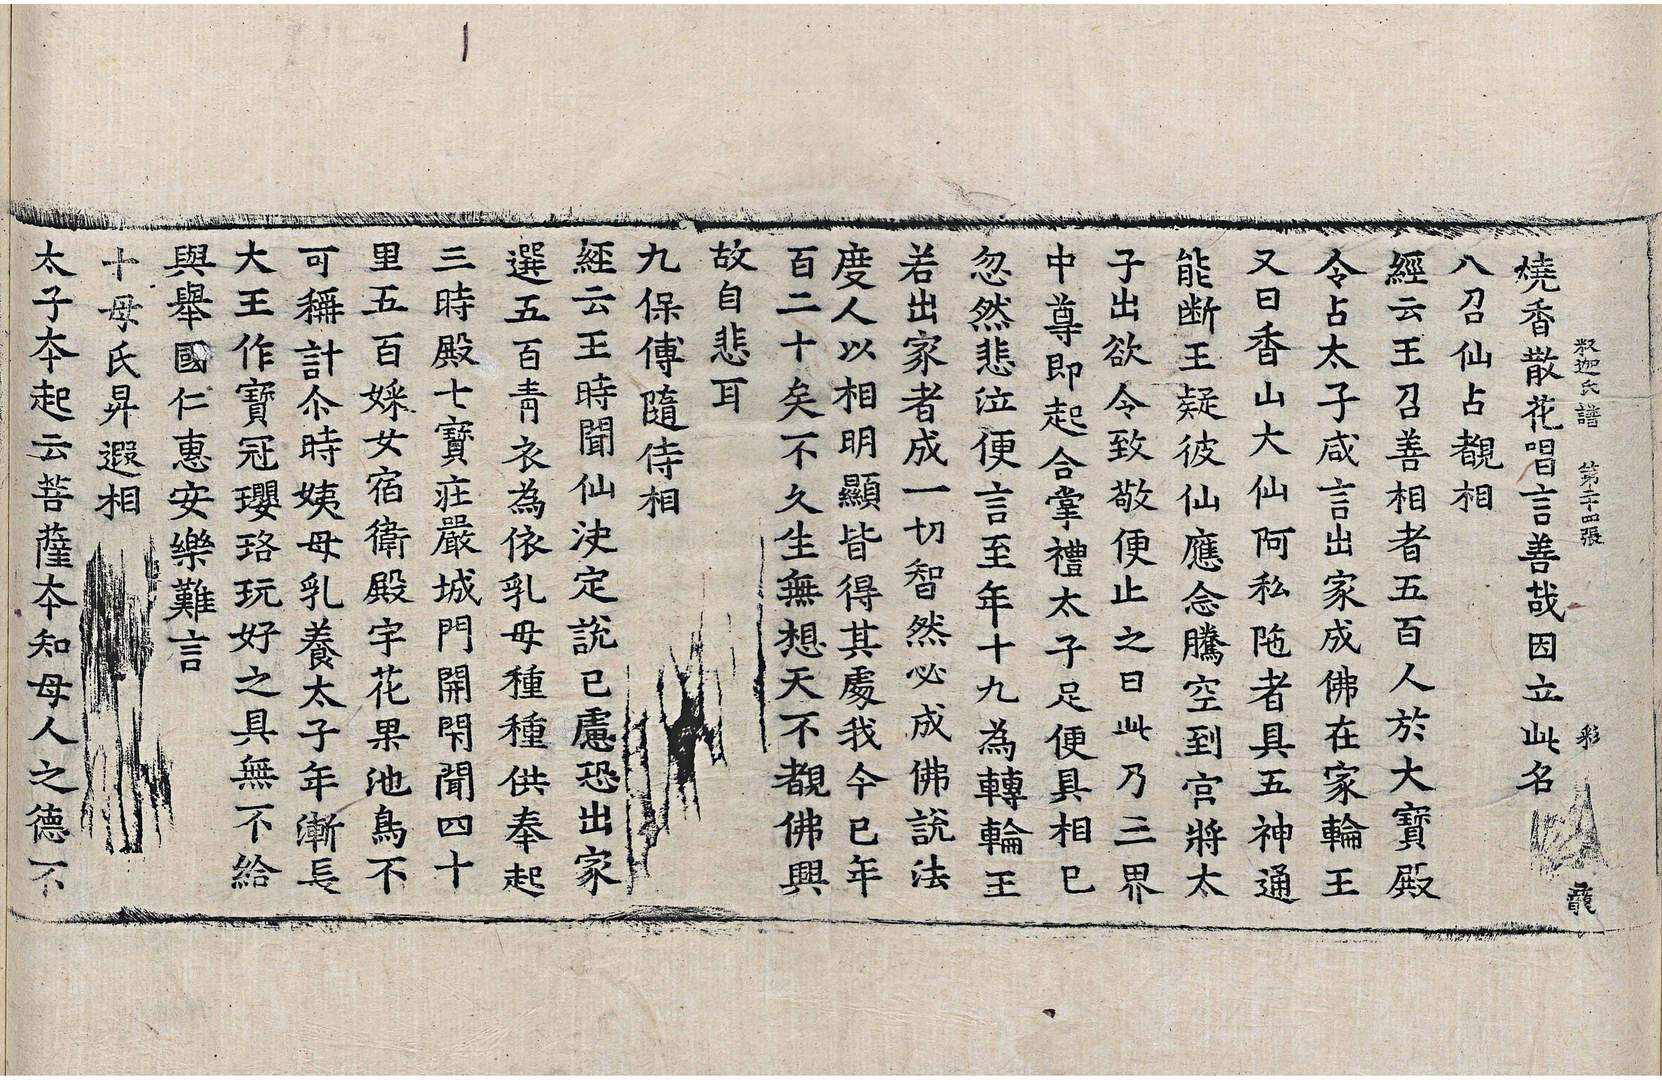 釈迦氏譜 第二十四張 彩 龍
燒香散花唱言善哉因立此名
八召仙占覩相
經云王召善相者五百人於大寶殿
令占太子咸言出家成佛在家輪王
又曰香山大仙阿私陁者具五神通
能断王疑彼仙應念騰空到宮將太
子出欲令致敬便止之曰此乃三界
中尊即起合掌禮太子足便具相已
忽然悲泣便言至年十九為轉輪王
若出家者成一切智然必成佛說法
度人以相明顯皆得其處我今已年
百二十矣不久生無想天不覩佛興
故自悲耳
九保傅隨侍相
經云王時聞仙決定說已慮恐出家
選五百青衣為依乳母種種供奉起
三時殿七寶莊嚴城門開閇聞四十
里五百婇女宿衛殿宇花果池鳥不
可稱計尒時姨母乳養太子年漸長
大王作寶冠瓔珞玩好之具無不給
與舉國仁惠安樂難言
十母氏昇遐相
太子夲起云菩薩夲知母人之德不